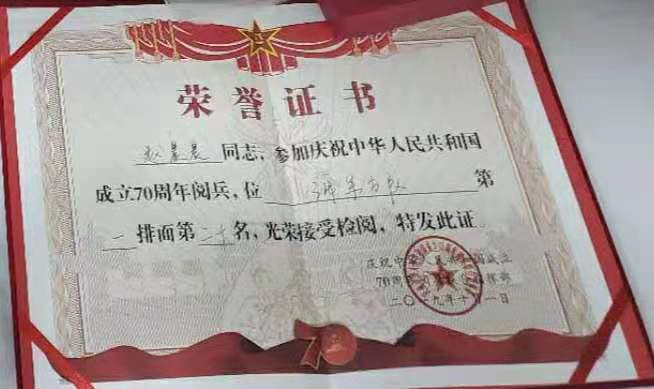 荣誉证书
赵晨晨 同志，参加庆祝中华人民共和国
成立70周年阅兵，位 方队 第
一 排面第 名，光荣接受检阅，特发此证
庆祝中 国成立
70周 指挥部
二〇一九年十月一日